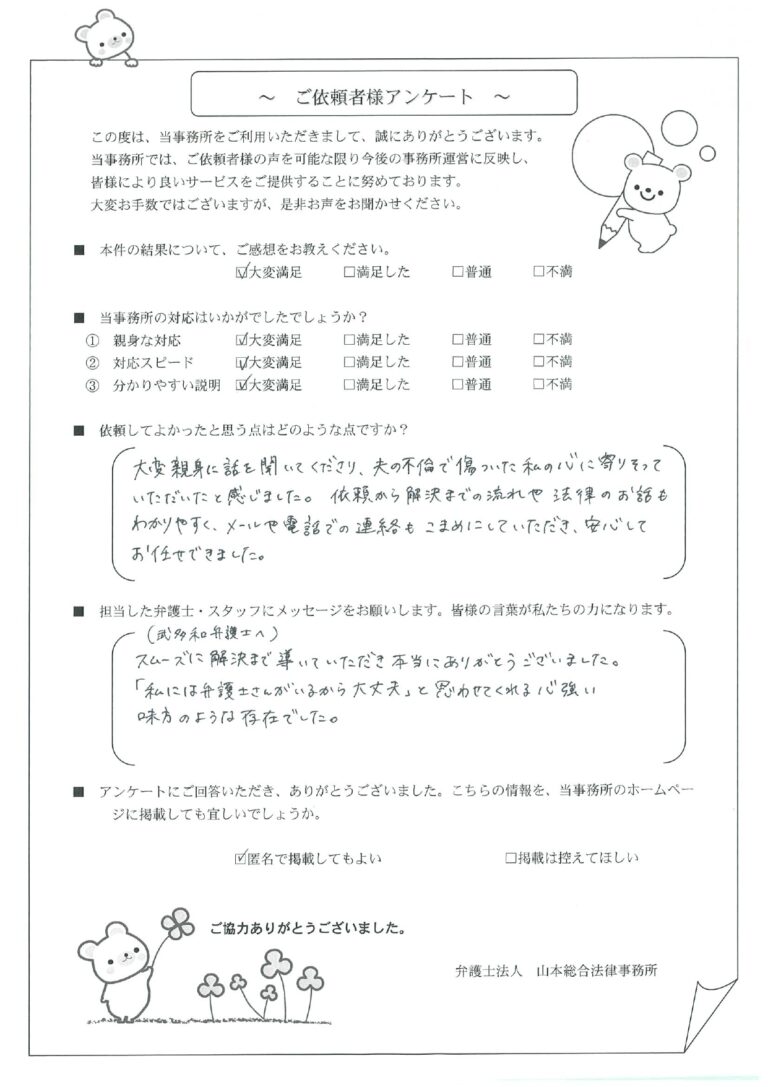 ～　ご依頼者様アンケート　～
この度は、当事務所をご利用いただきまして、誠にありがとうございます。
当事務所では、ご依頼者様の声を可能な限り今後の事務所運営に反映し、
皆様により良いサービスをご提供することに努めております。
大変お手数ではございますが、是非お声をお聞かせください。
■　本件の結果について、ご感想をお教えください。
☑大変満足　□満足した　□普通　□不満
■　当事務所の対応はいかがでしたでしょうか？
①　親身な対応　☑大変満足　□満足した　□普通　□不満
②　対応スピード　☑大変満足　□満足した　□普通　□不満
③　分かりやすい説明　☑大変満足　□満足した　□普通　□不満
■　依頼してよかったと思う点はどのような点ですか？
大変親身に話を聞いてくださり、夫の不倫で傷ついた私の心に寄りそって
いただいたと感じました。依頼から解決までの流れや法律のお話も
わかりやすく、メールや電話での連絡もこまめにしていただき、安心して
お任せできました。
■　担当した弁護士・スタッフにメッセージをお願いします。皆様の言葉が私たちの力になります。
（武多和弁護士へ）
スムーズに解決まで導いていただき本当にありがとうございました。
「私には弁護士さんがいるから大丈夫」と思わせてくれる心強い
味方のような存在でした。
■　アンケートにご回答いただき、ありがとうございました。こちらの情報を、当事務所のホームペー
ジに掲載しても宜しいでしょうか。
☑匿名で掲載してもよい　□掲載は控えてほしい
ご協力ありがとうございました。
弁護士法人　山本総合法律事務所